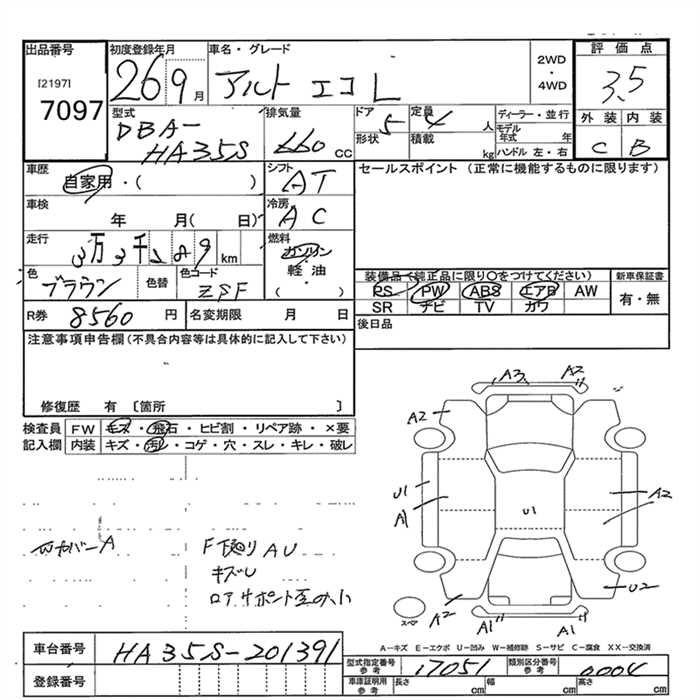 出品番号
[2197]
7097
初度登録年月
26 9月
車名・グレード
アルト エコ L
2WD
・
4WD
評価点
3.5
型式
DBA-
HA35S
排気量
660 CC
ドア 5
形状
定員 4 人
積載 kg
ディーラー・並行
モデル年式 年
ハンドル 左・右
外装 内装
C B
車歴
自家用・( )
シフト
AT
セールスポイント (正常に機能するものに限ります)
車検
年 月( 日)
冷房
AC
走行
3万3千 km
燃料
ガソリン
・
軽・油
( )
色
ブラウン
色替
色コード
ZSF
装備品(純正品に限り○をつけてください)
PS PW ABS エアB AW
SR ナビ TV カワ
新車保証書
有・無
R券 8560 円
名変期限 月 日
後日品
注意事項申告欄(不具合内容等は具体的に記入して下さい)
修復歴 有 〔箇所 〕
検査員
記入欄
FW キズ・飛石・ヒビ割・リペア跡・×要
内装 キズ・汚レ・コゲ・穴・スレ・キレ・破レ
A3 A2
A2
U1
A1
U1
A2
U2
A2
スペア
A1 A1
カバーA
F下廻り AU
キズU
ロアサポート
A-キズ E-エクボ U-凹み W-補修跡 S-サビ C-腐食 XX-交換済
車台番号 HA35S-201391
登録番号
型式指定番号
参考
17051
類別区分番号
参考
0004
車庫証明用
参考
長さ cm
幅 cm
高さ cm